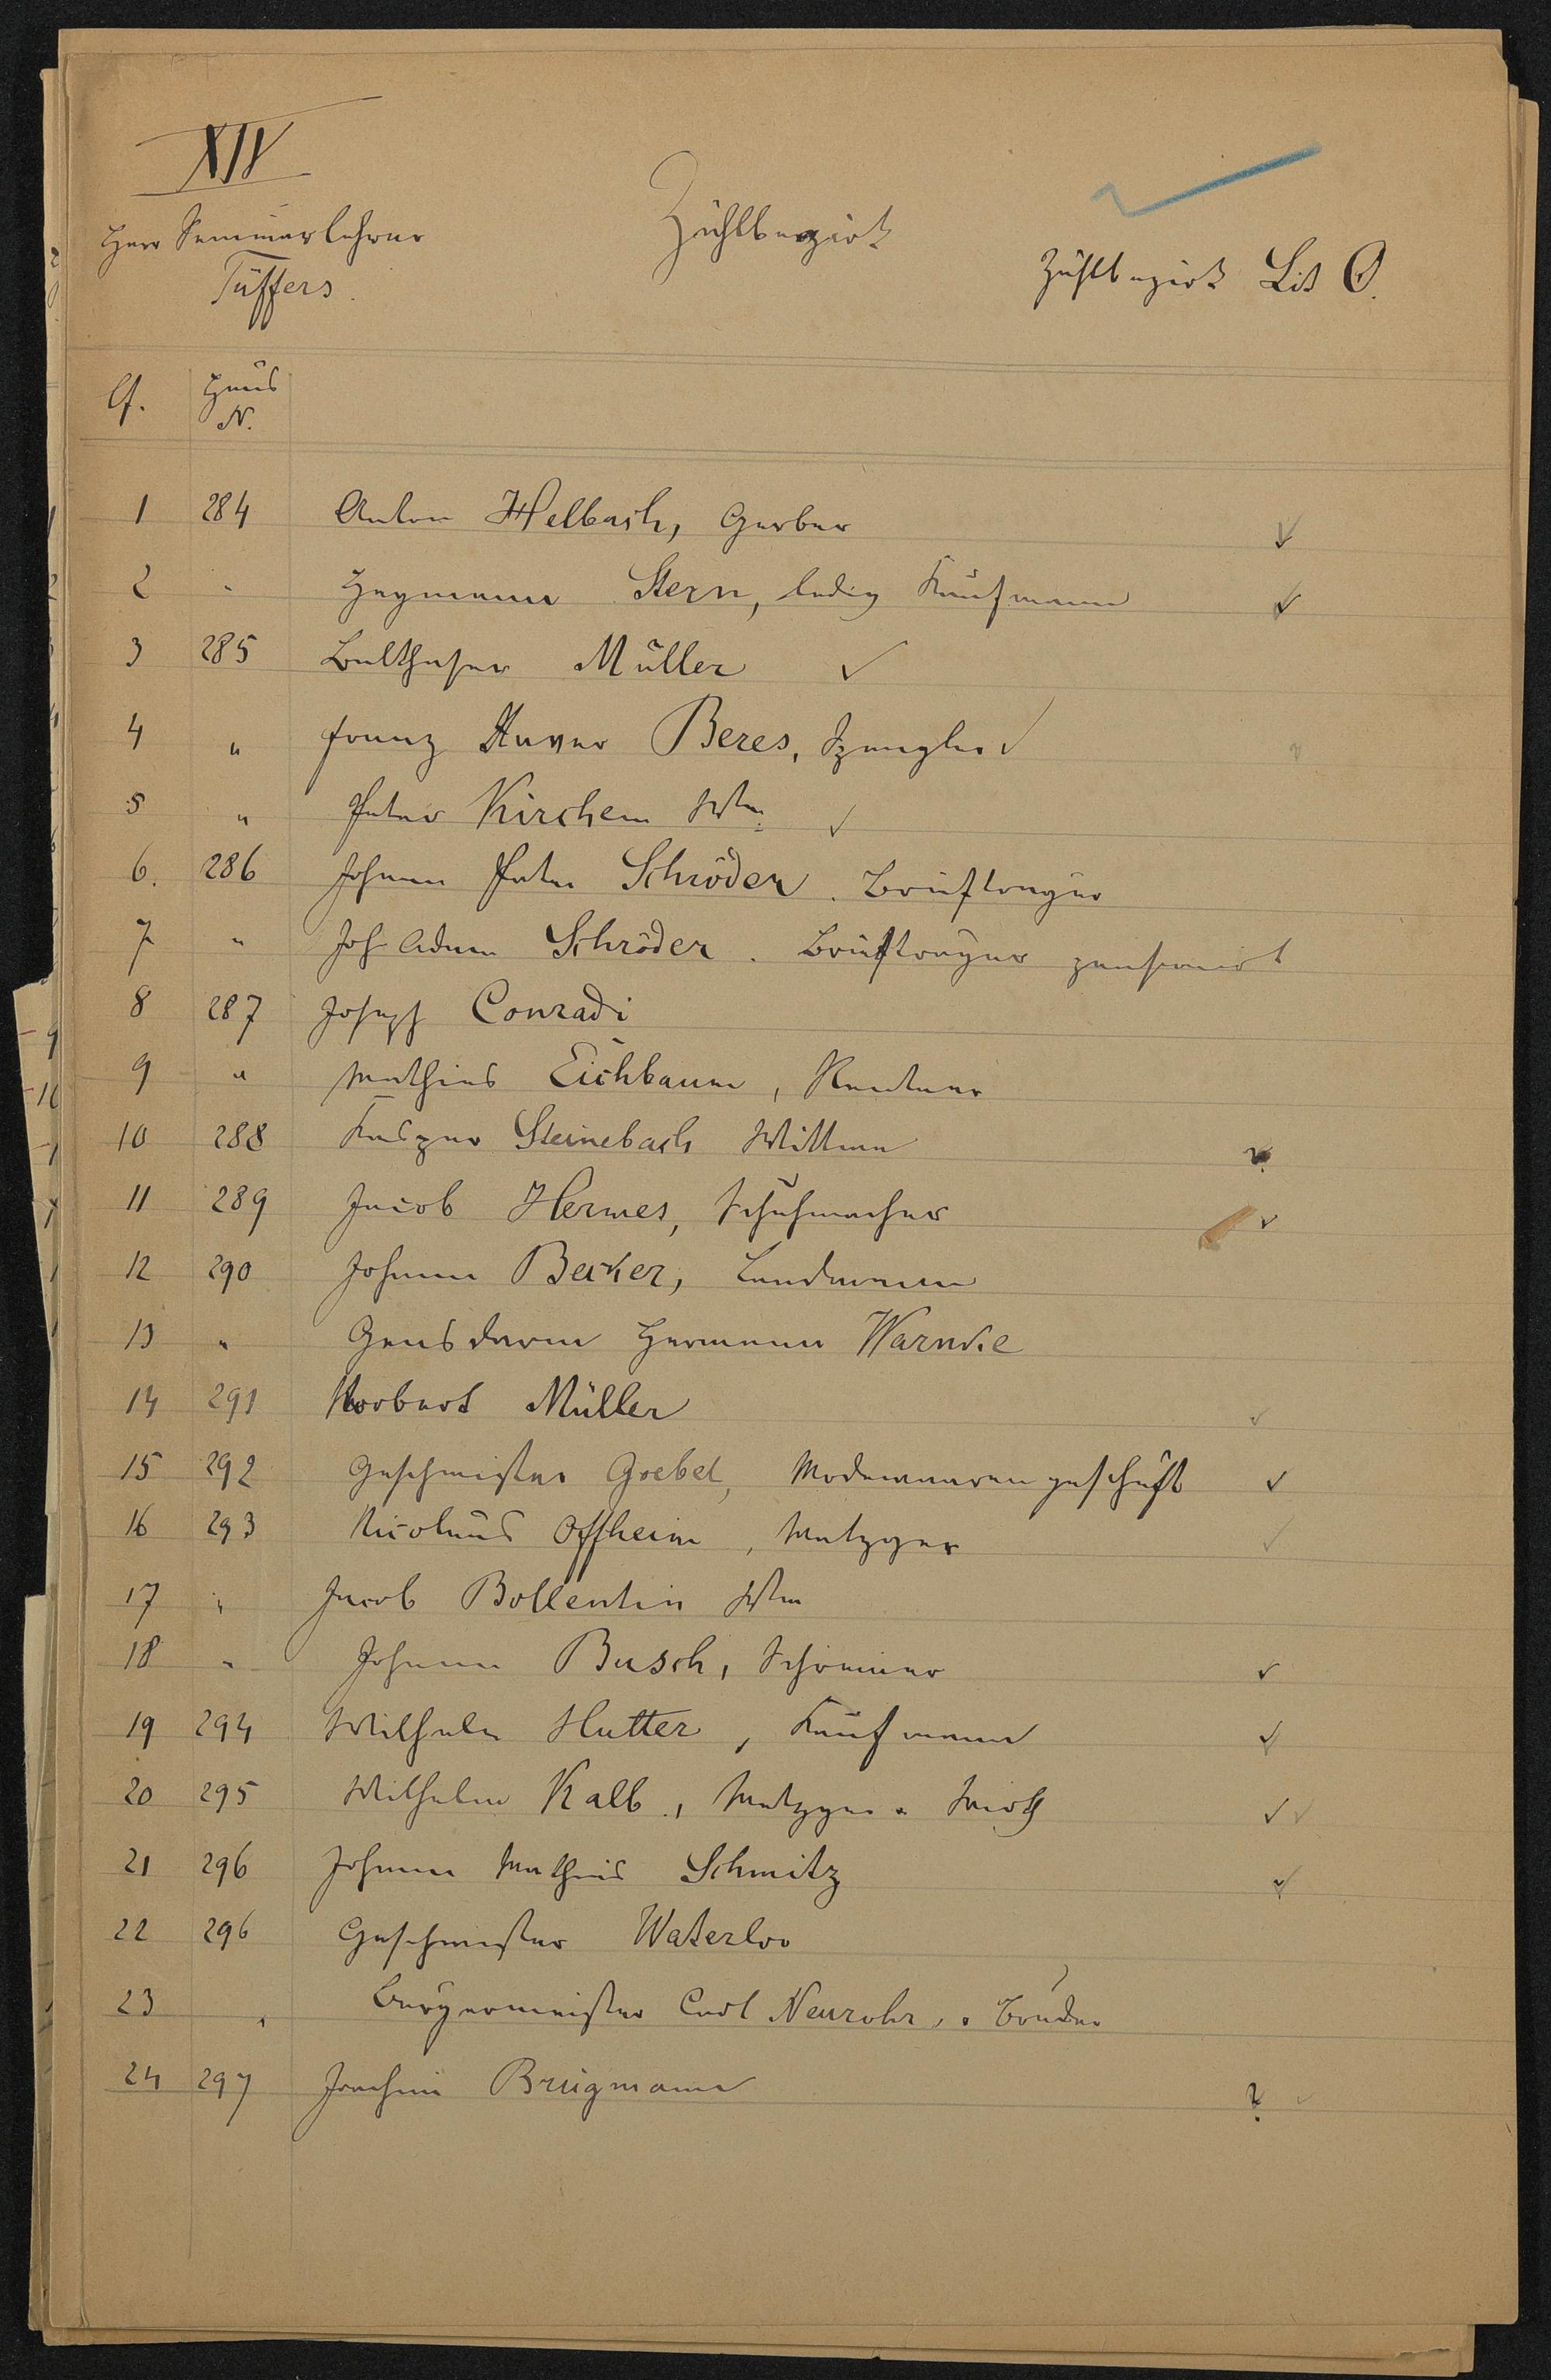 XIV
Herr Seminarlehrer
Tüffers.
Zählbezirk
Zählbezirk Lit O.
lf. Haus
N.
1 284 Anton Helbach, Gerber
2 " Heymann Stern, ledig Kaufmann
3 285 Balthasar Müller
4 " Franz Xaver Beres, Spengler
5 " Peter Kirchem Wtw.
6. 286 Johann Peter Schröder. Briefträger
7 " Joh Adam Schröder. Briefträger pensionirt
8 287 Joseph Conradi
9 " Mathias Eichbaum, Rentner
10 288 Kaspar Steinebach Wittwe
11 289 Jacob Hermes, Schuhmacher
12 290 Johann Becker, Landmann
13 " Gensdarm Hermann Warncke
14 291 Norbert Müller
15 292 Geschwister Goebel, Modewaarengeschäft
16 293 Nicolaus Offheim, Metzger
17 " Jacob Bollentin Wtw
18 " Johann Busch, Schreiner
19 294 Wilhelm Hutter, Kaufmann
20 295 Wilhelm Kalb, Metzger u Wirth
21 296 Johann Mathias Schmitz
22 296 Geschwister Waterloo
23 " Bürgermeister Carl Neurohr, u Bruder
24 297 Joachim Brügmann ?